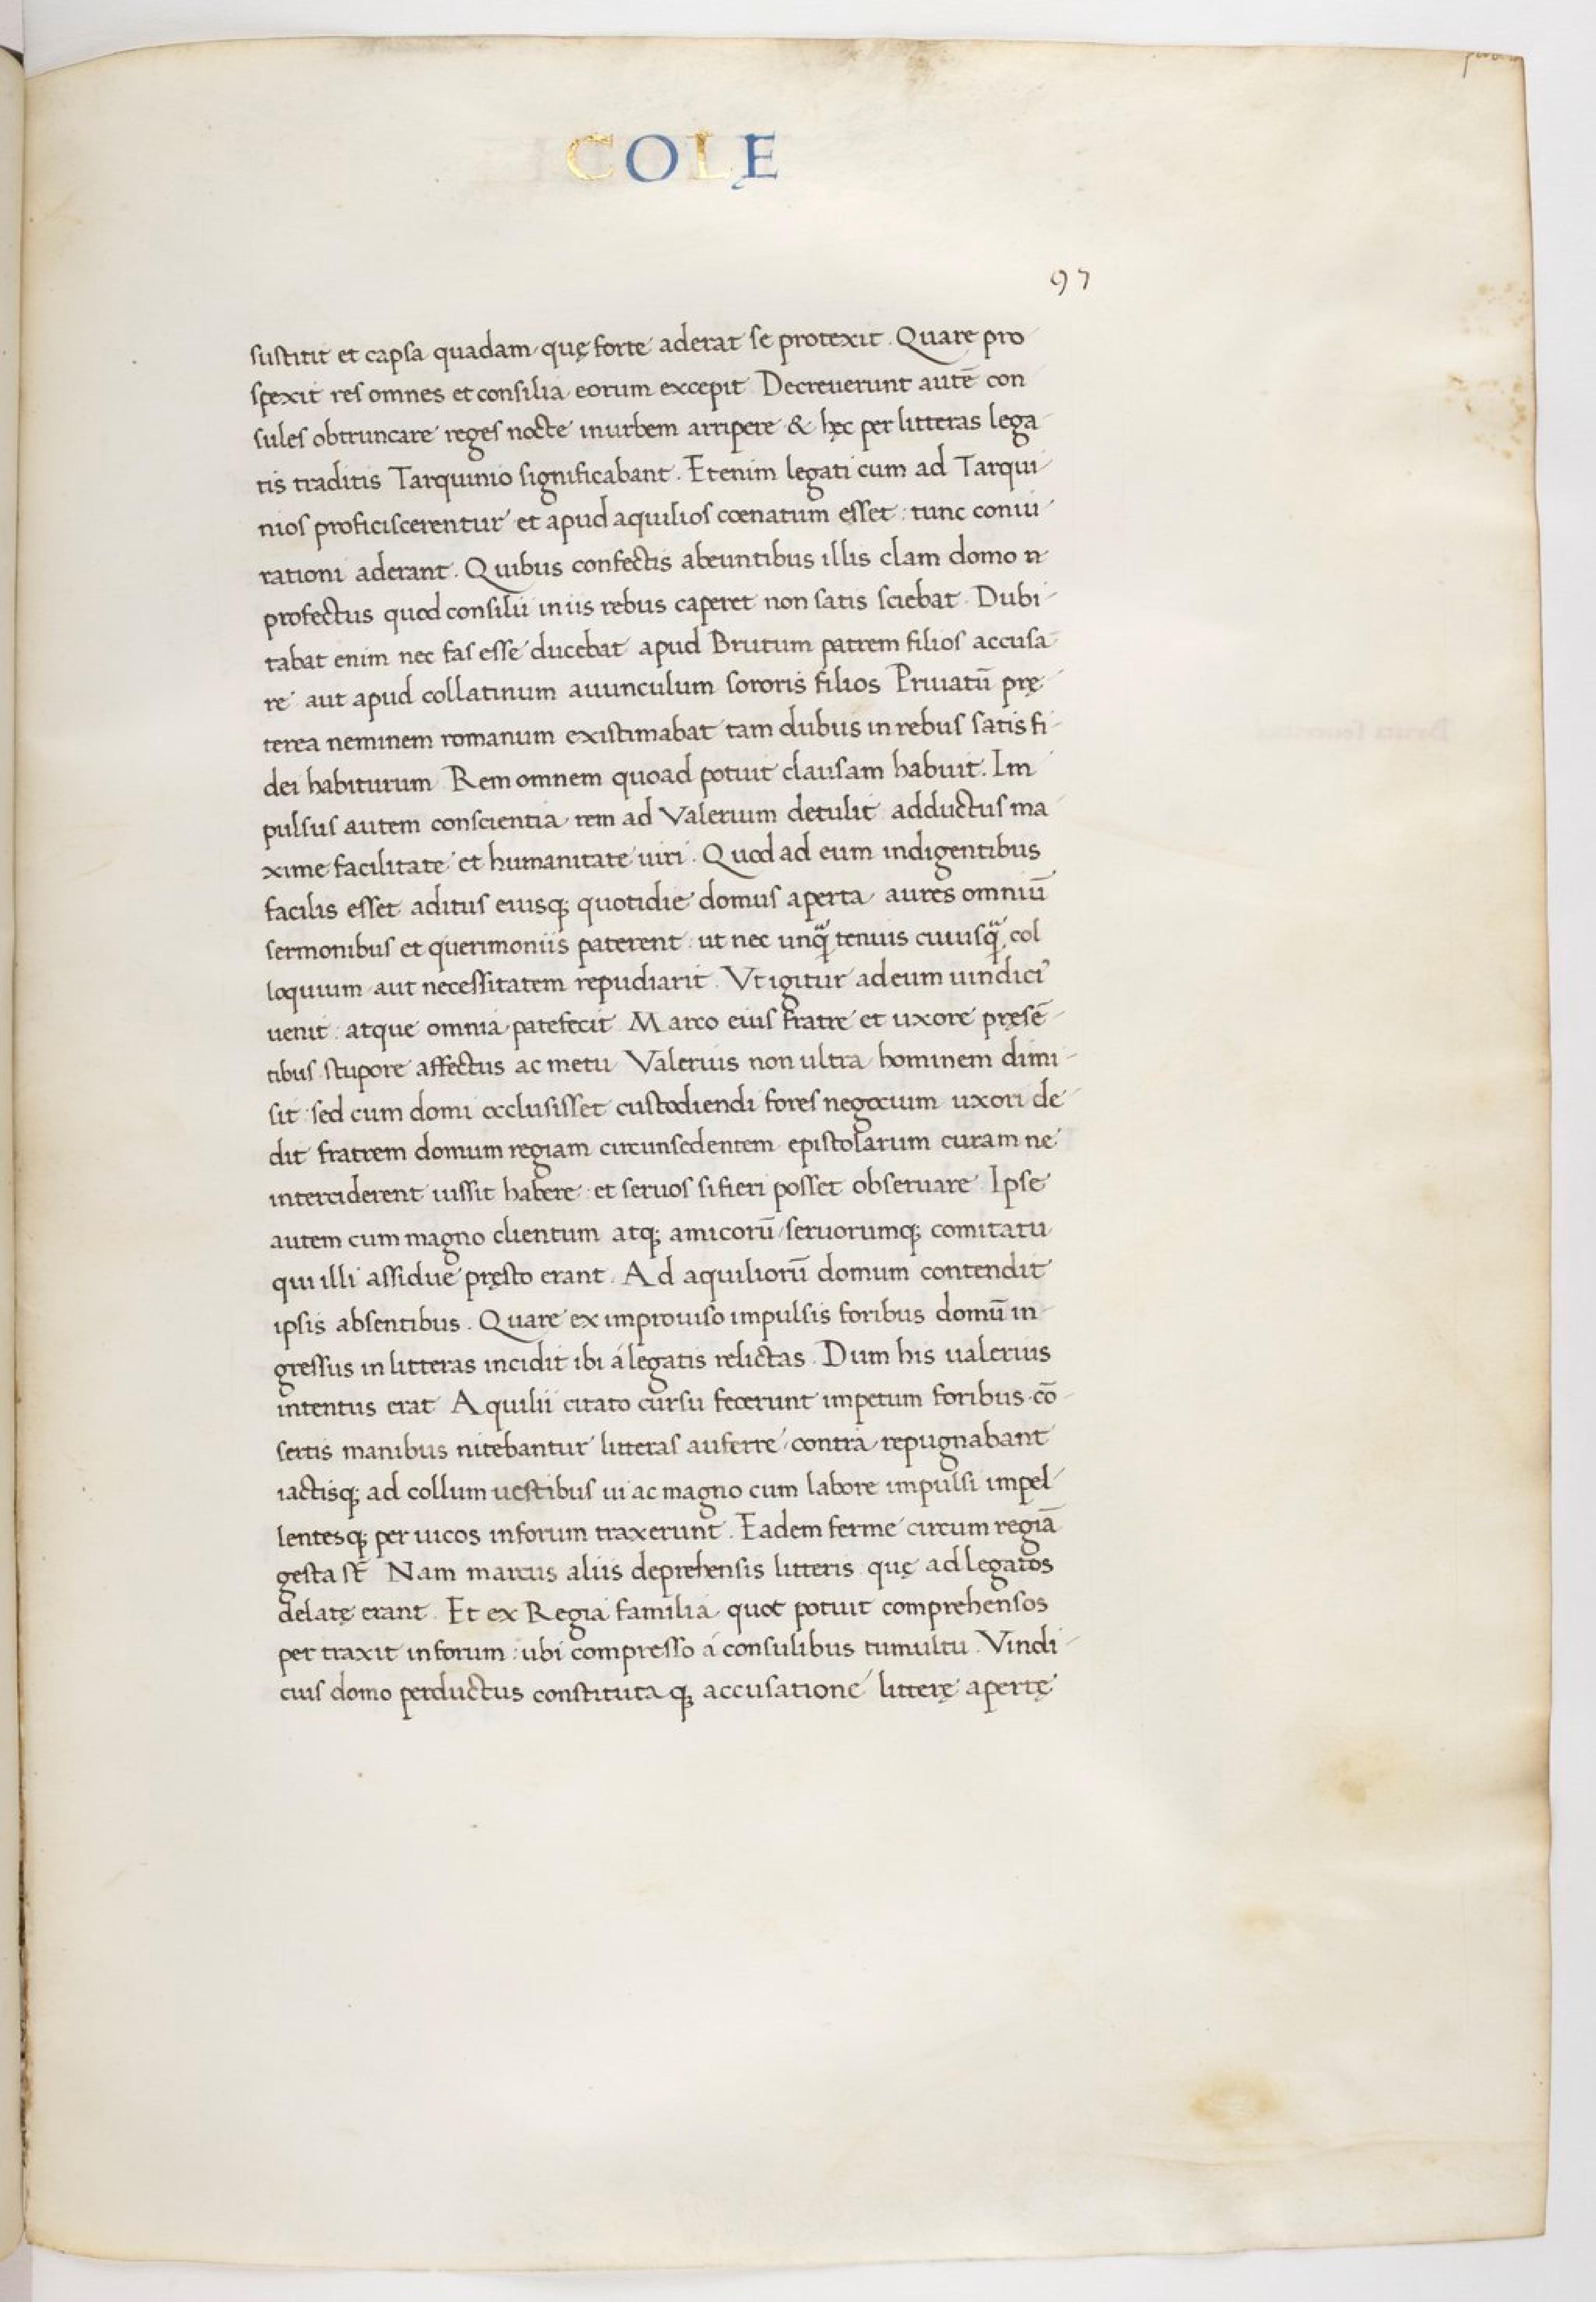 COLĘ
97
sustitit et capsa quadam quę forte aderat se protexit. Quare pro
spexit res omnes et consilia eorum excepit Decreuerunt autē con
sules obtruncare reges nocte inurbem arripere & hęc per litteras lega
tis traditis Tarquinio significabant. Etenim legati cum ad Tarqui
nios proficiscerentur et apud aquilios cœnatum esset: tunc coniu
rationi aderant. Quibus confectis abeuntibus illis clam domo
profectus quod consilii in iis rebus caperet non satis sciebat. Dubi
tabat enim nec fas esse ducebat apud Brutum patrem filios accusa
re aut apud collatinum auunculum sororis filios Priuatū prę
terea neminem romanum existimabat tam dubus in rebus satis fi
dei habiturum Rem omnem quoad potuit clausam habuit. Im
pulsus autem conscientia rem ad Valerium detulit adductus ma
xime facilitate et humanitate uiri. Quod ad eum indigentibus
facilis esset aditus eiusq; quotidie domus aperta aures omniū
sermonibus et querimoniis paterent: ut nec unqᵃ tenuis cuiusqᵃ col
loquium aut necessitatem repudiarit. Vt igitur ad eum uindici᾿
uenit: atque omnia patefecit Marco eius fratre et uxore pręsē
tibus stupore affectus ac metu Valerius non ultra hominem dimi
sit: sed cum domi occlusisset custodiendi fores negocium uxori de
dit fratrem domum regiam circunsedentem epistolarum curam ne
interciderent iussit habere: et seruos si fieri posset obseruare Ipse
autem cum magno clientum atq; amicorū seruorumq; comitatu
qui illi assidue pręsto erant. Ad aquiliorū domum contendit
ipsis absentibus. Quare ex improuiso impulsis foribus domū in
gressus in litteras incidit ibi á legatis relictas. Dum his ualerius
intentus erat Aquilii citato cursu fecerunt impetum foribus cō
sertis manibus nitebantur litteras auferre contra repugnabant
iactisq; ad collum uestibus ui ac magno cum labore impulsi impel
lentesq; per uicos inforum traxerunt. Eadem ferme circum regiā
gesta st̄ Nam marcus aliis deprehensis litteris quę ad legatos
delatę erant. Et ex Regia familia quot potuit comprehensos
per traxit inforum: ubi compresso á consulibus tumultu. Vindi
cius domo perductus constituta q; accusatione litterę apertę